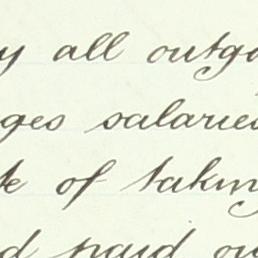 y all outgo
ges salaries
te of taking
d paid ou